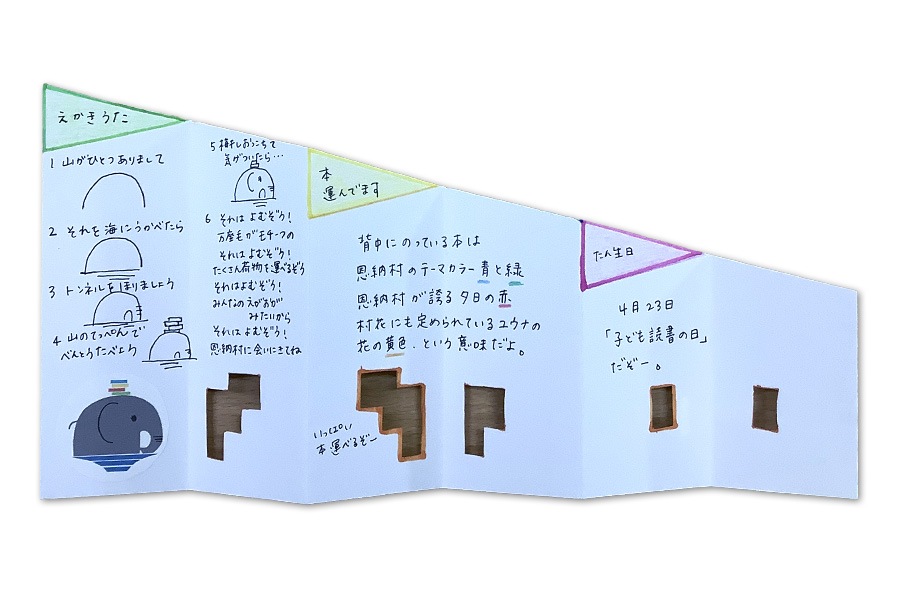 えかきうた
1 山がひとつありまして
2 それを海にうかべたら
3 トンネルをほりましょう
4 山のてっぺんで
べんとうたべよう
5 梅干しおっこちて
気がついたら…
6 それは よむぞう!
万座毛がモチーフの
それは よむぞう!
たくさん荷物を運べるぞう
それはよむぞう!
みんなのえがおが
みたいから
それは よむぞう!
恩納村に会いにきてね
本
運んでます
背中にのっている本は
恩納村のテーマカラー青と緑
恩納村が誇る夕日の赤
村花にも定められているユウナの
花の黄色、という意味だよ。
いっぱい
本運べるぞー
たん生日
4月23日
「子ども読書の日」
だぞー。